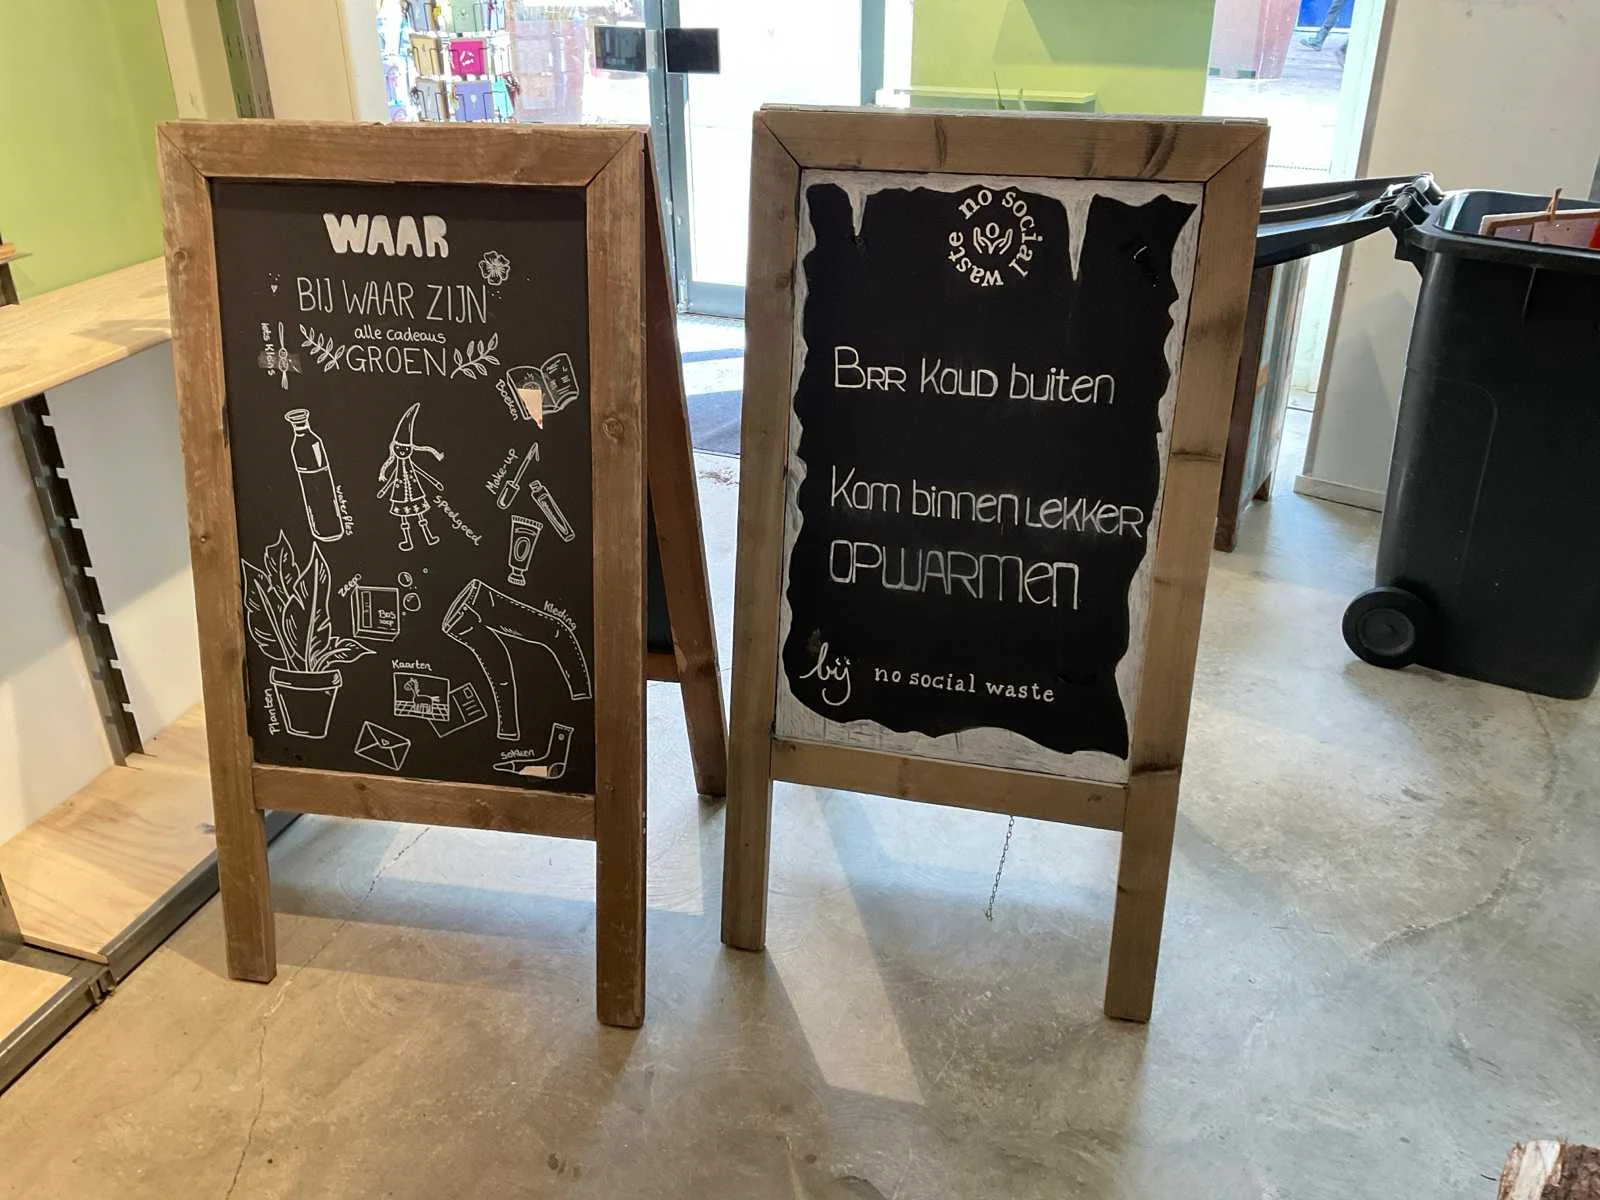 WAAR
BIJ WAAR ZIJN
alle cadeaus
GROEN
iets kleins
Boeken
waterfles
Speelgoed
Make-up
zeep
BOS
soap
Kleding
Planten
Kaarten
sokken
no social waste
BRR KOUD buiten
Kom binnen LEKKER
OPWARMEN
bij no social waste